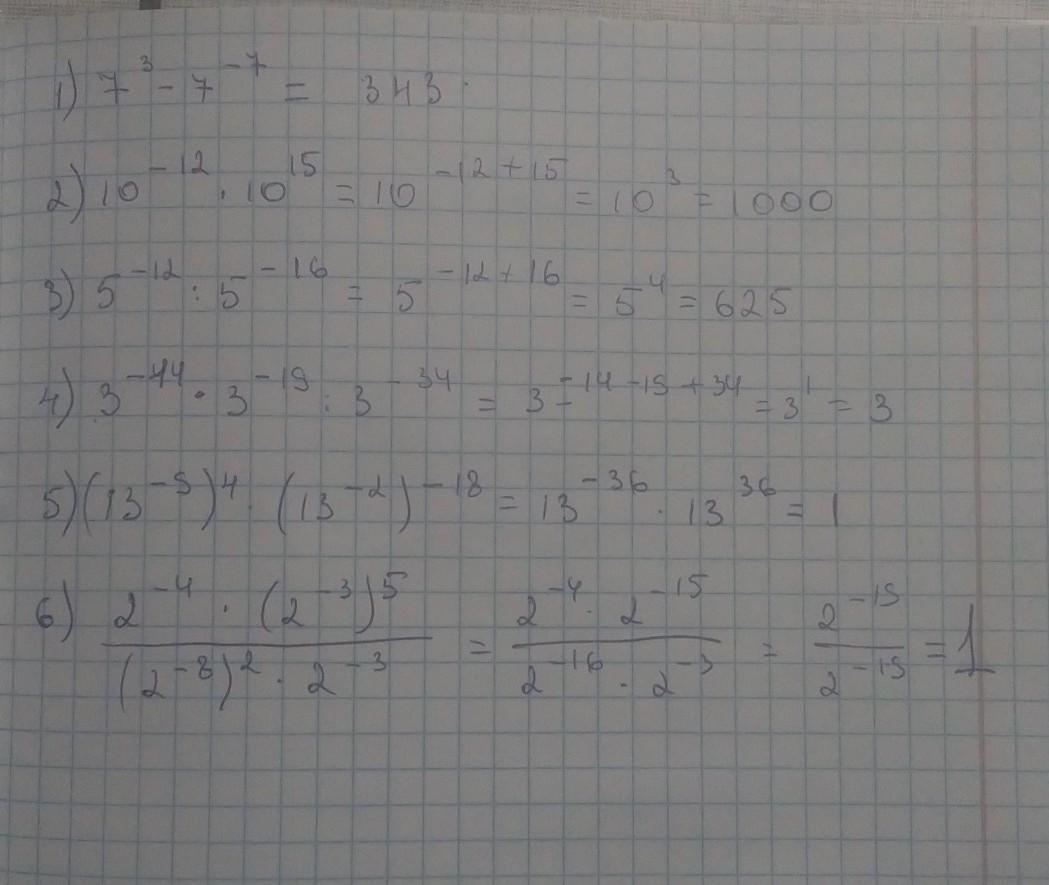 1) 7^3 - 7^-7 = 343
2) 10^-12 · 10^15 = 10^-12+15 = 10^3 = 1000
3) 5^-12 : 5^-16 = 5^-12+16 = 5^4 = 625
4) 3^-44 · 3^-19 : 3^-34 = 3^-14-19+34 = 3^1 = 3
5) (13^-9)^4 · (13^-2)^-18 = 13^-36 · 13^36 = 1
6) (2^-4 · (2^-3)^5) / ((2^-8)^2 · 2^-3) = (2^-4 · 2^-15) / (2^-16 · 2^-3) = 2^-19 / 2^-19 = 1